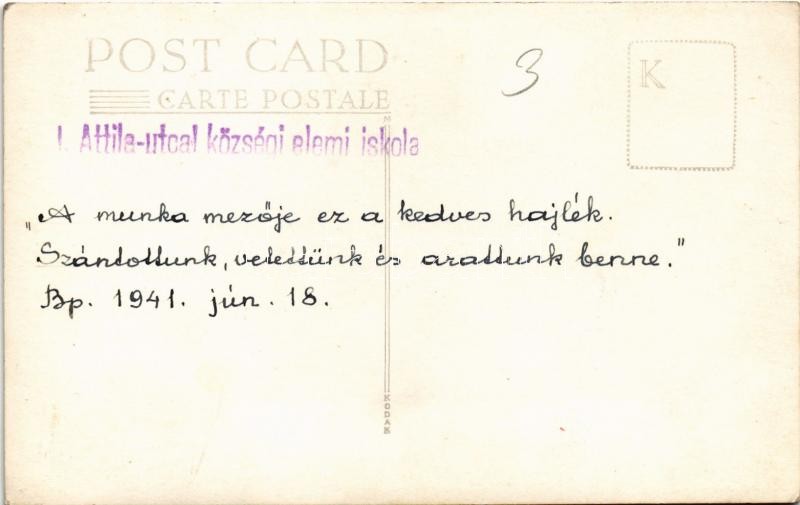 POST CARD
CARTE POSTALE
3
K
I. Attila-utcai községi elemi iskola
„A munka mezője ez a kedves hajlék.
Szántottunk, vetettünk és arattunk benne."
Bp. 1941. jún. 18.
KODAK